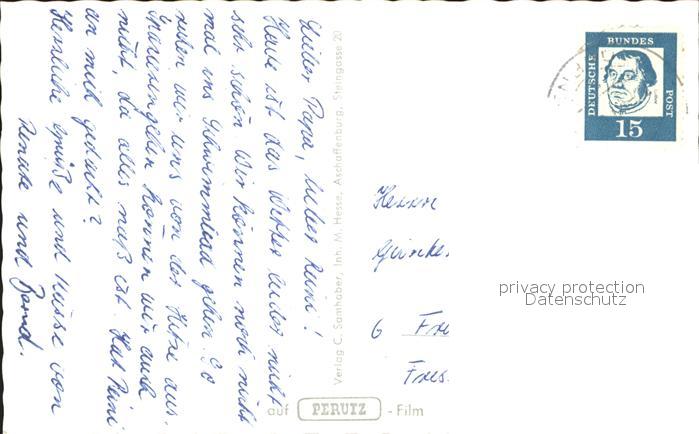 Lieber Papa, lieber Reini!
Heute ist das Wetter leider nicht
sehr schön. Wir können noch nicht
mal ins Schwimmbad gehen. So
ruhen wir uns von der Hitze aus.
Spazierengehen können wir auch
nicht, da alles naß ist. Hat Reini
an mich gedacht?
Herzliche Grüße und Küsse von
Renate und Bernd.
Verlag C. Samhaber, Inh. M. Hesse, Aschaffenburg, Steingasse 20
auf PERUTZ - Film
DEUTSCHE BUNDES POST
15
Herrn
6 Fre
Fres.
privacy protection
Datenschutz